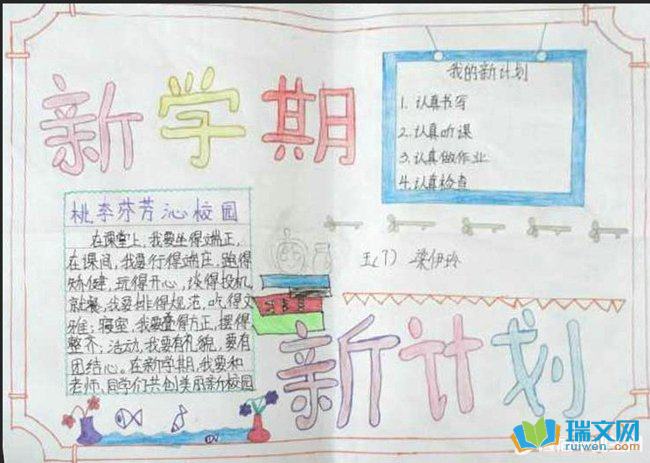 新学期
我的新计划
1.认真书写
2.认真听课
3.认真做作业
4.认真检查
桃李芬芳沁校园
在课堂上,我要坐得端正,
在课间,我要行得端庄,跑得
矫健,玩得开心,谈得投机,
就餐,我要排得规范,吃得文
雅;寝室,我要叠得方正,摆得
整齐,活动,我要有礼貌,要有
团结心。在新学期,我要和
老师、同学们共创美丽新校园
五(7) 梁伊玲
新计划
瑞文网
ruiwen.com